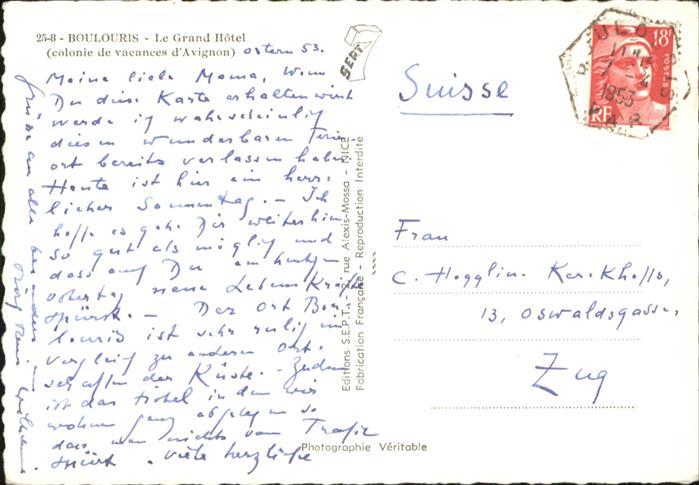 25-8 - BOULOURIS - Le Grand Hôtel
(colonie de vacances d'Avignon)
Ostern 53.
Meine liebe Mama, Wenn
Du diese Karte erhalten wirst
werde ich wahrscheinlich
diesen wunderbaren Ferien-
ort bereits verlassen haben.
Heute ist hier ein herr-
licher Sonntag. - Ich
hoffe es gehe Dir weiterhin
so gut als möglich und
dass auch Du am heutigen
Ostertag neue Lebens Kräfte
spürst. - Der Ort Bou-
louris ist sehr ruhig im
Vergleich zu anderen Ort-
schaften der Küste. Zudem
ist das Hotel in dem wir
wohnen ganz abgelegen so
dass man nichts vom Trafic
spürt. Viele herzliche
Grüsse an alle besonders
SEPT
Editions S.E.P.T. - rue Alexis-Mossa - NICE
Fabrication Française - Reproduction Interdite
Photographie Véritable
18F
POSTES
RF
1953
VAR
Suisse
Frau
C. Hegglin-Kerckhoffs,
13, Oswaldsgasse,
Zug